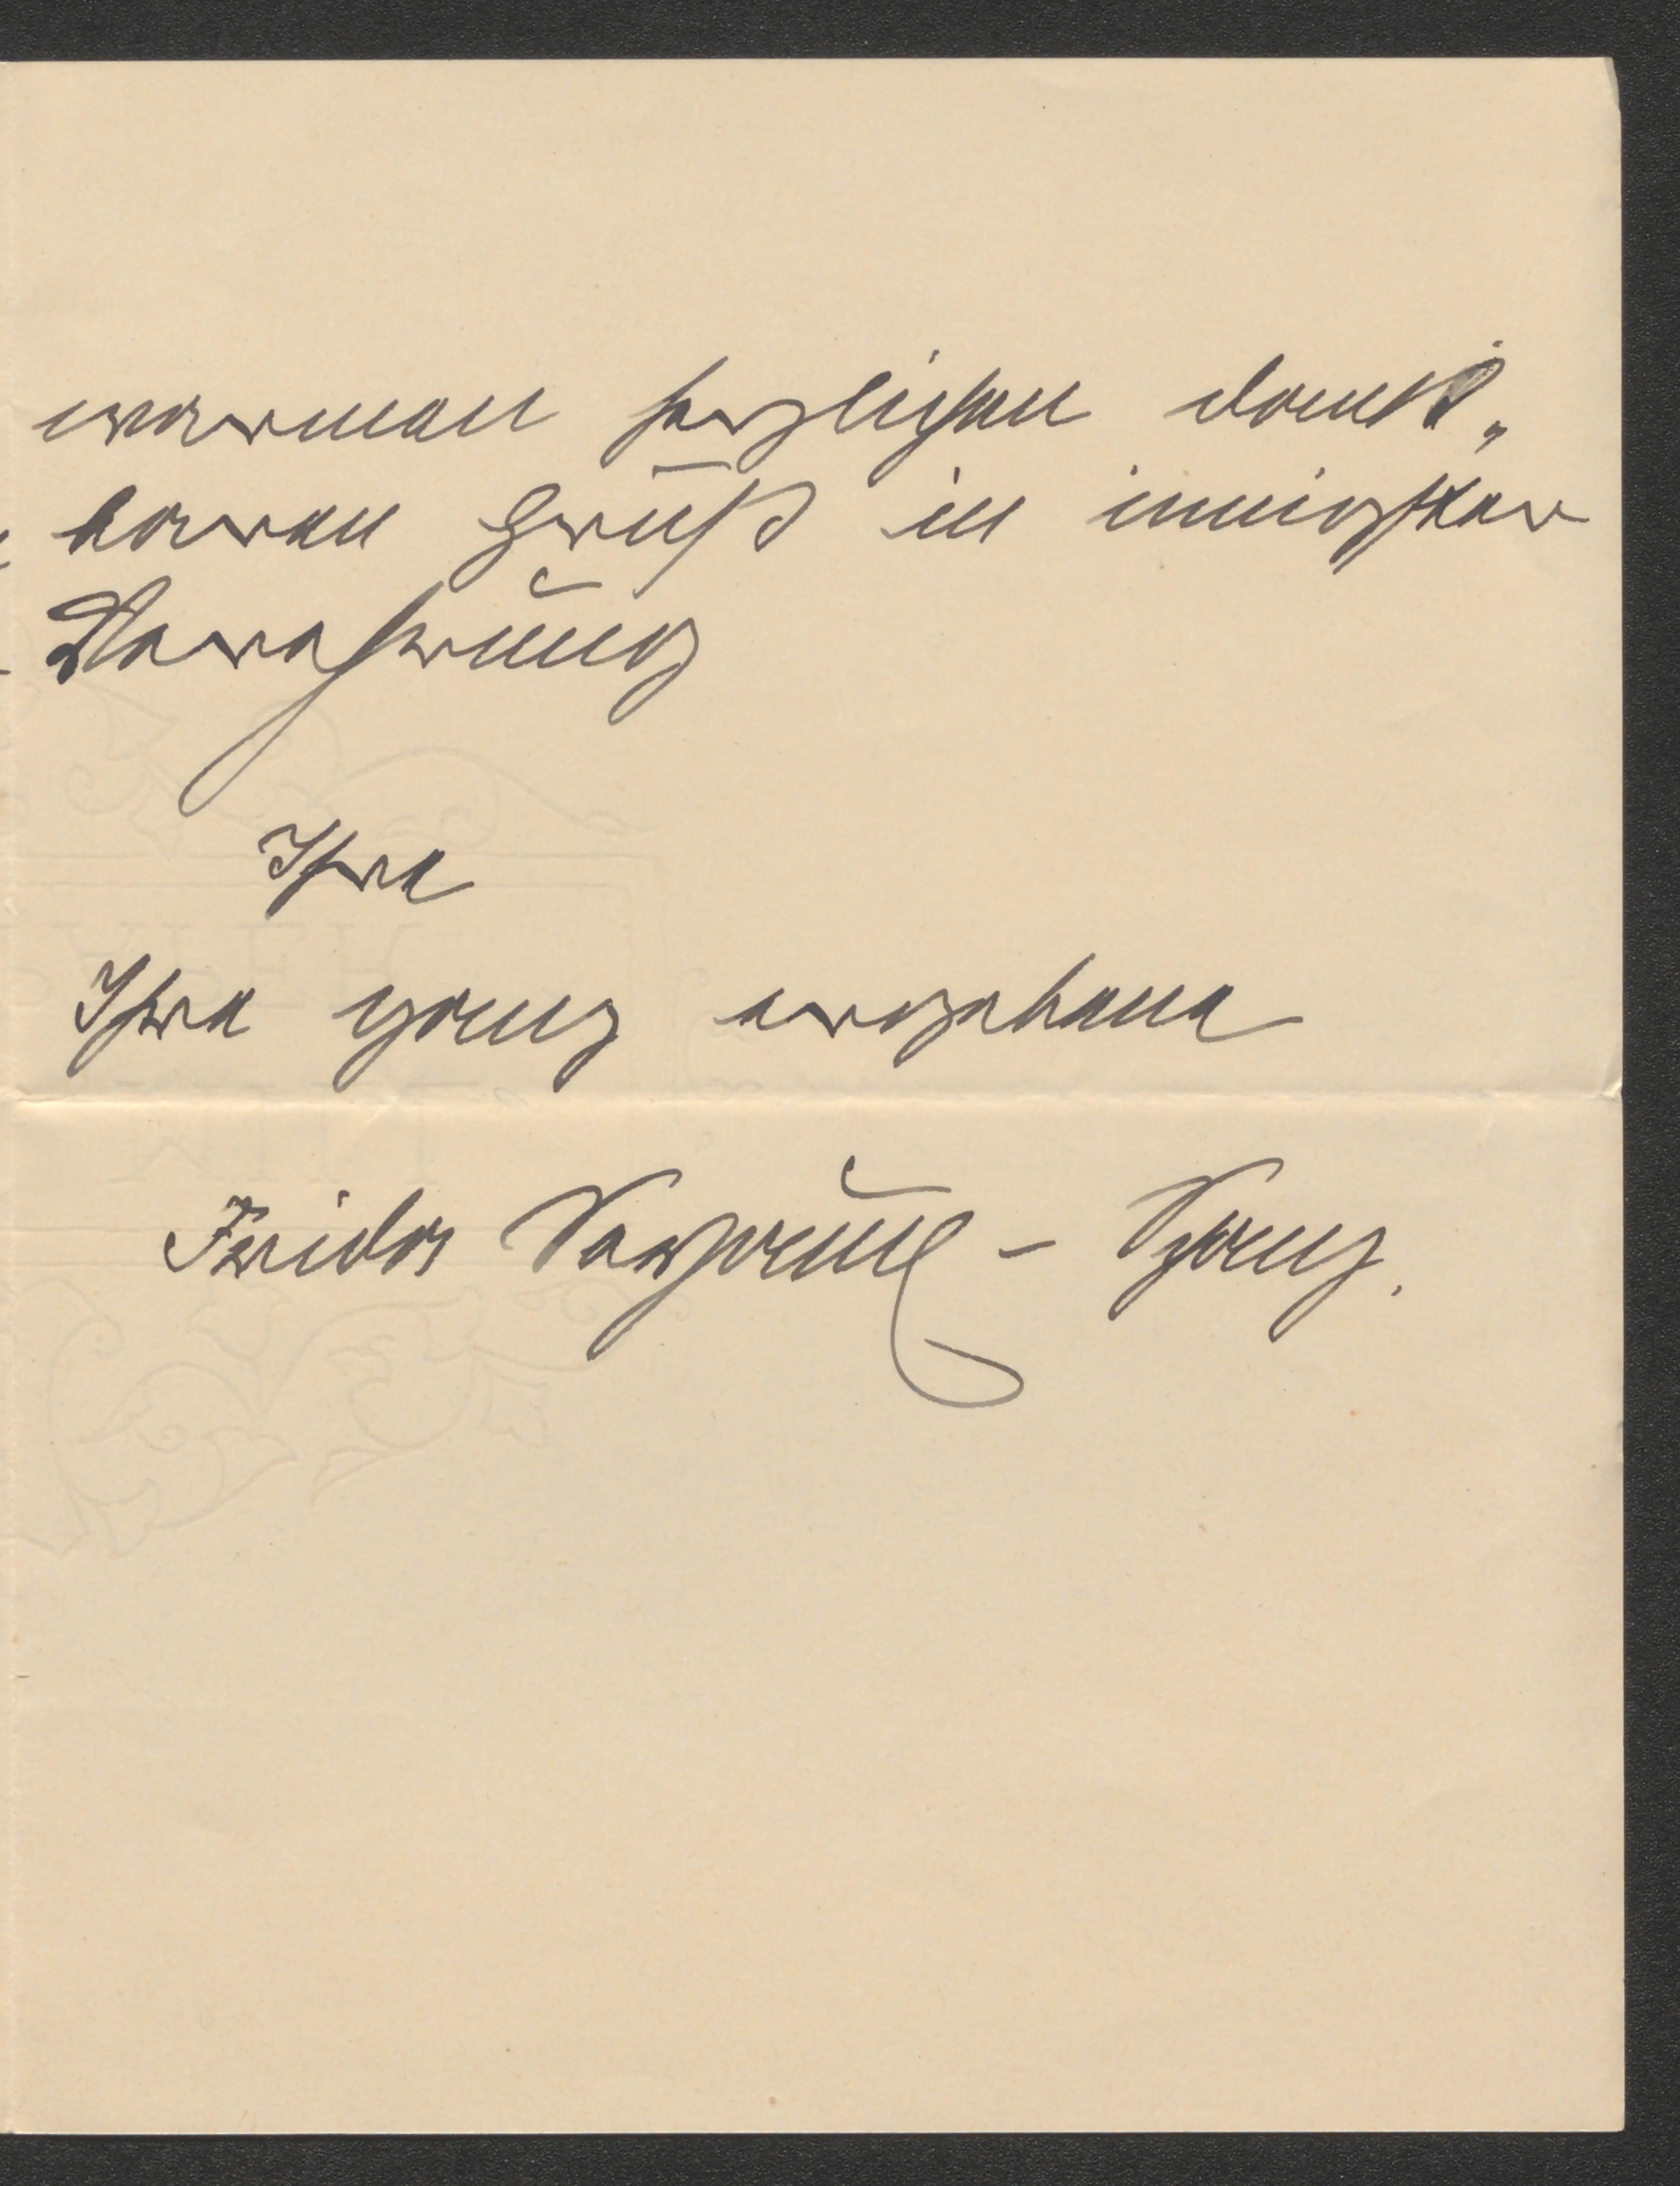 warmen herzlichen dank„
baren Gruß in innigster
Verehrung
Ihre
Ihre ganz ergebene
Frida Soyaux - Schanz.